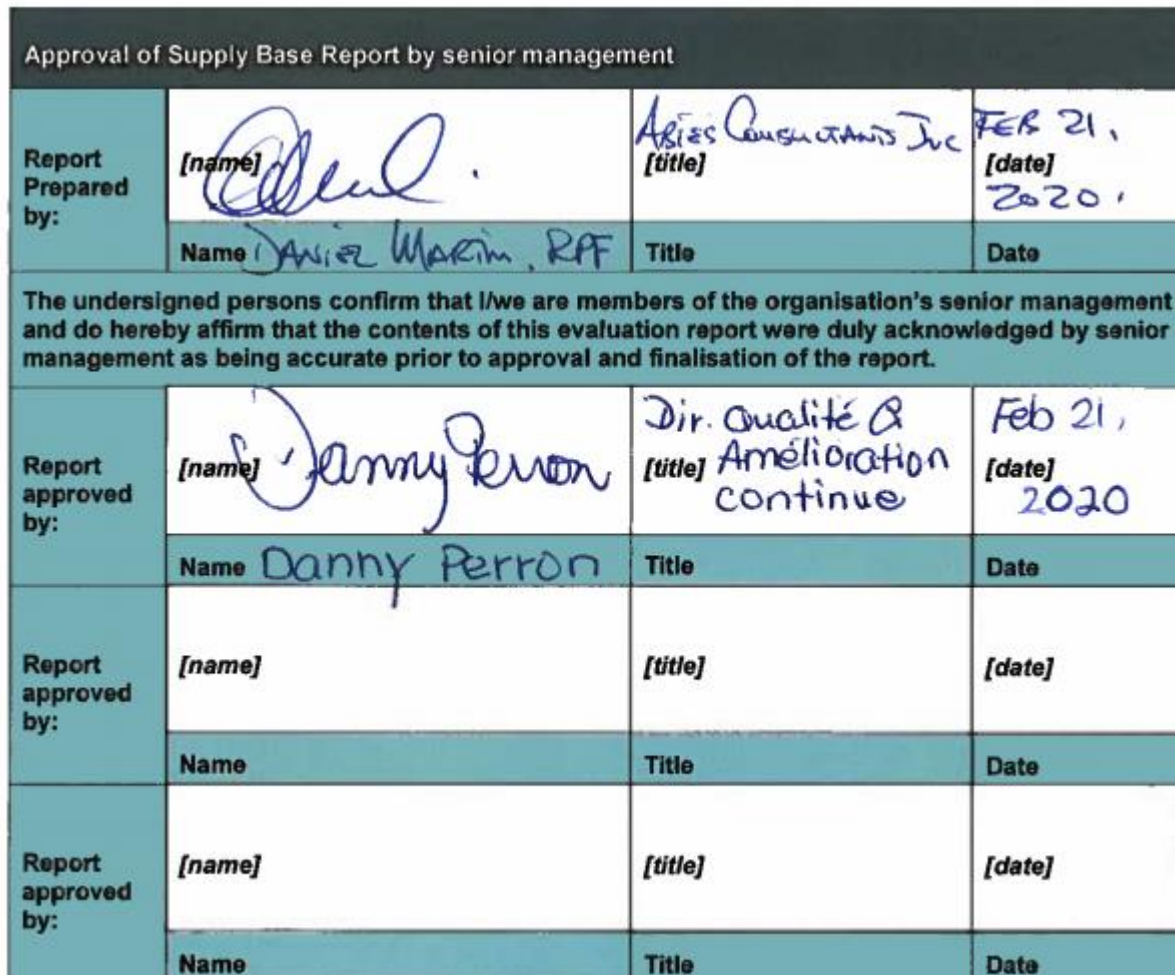 Approval of Supply Base Report by senior management
Report Prepared by:
[name]
ABIES CONSULTANTS INC
[title]
FEB 21,
[date]
2020.
Name DANIEL MARIM, RPF
Title
Date
The undersigned persons confirm that I/we are members of the organisation's senior management
and do hereby affirm that the contents of this evaluation report were duly acknowledged by senior
management as being accurate prior to approval and finalisation of the report.
Report approved by:
[name] Danny Perron
Dir. Qualité &
[title] Amélioration
continue
Feb 21,
[date]
2020
Name Danny Perron
Title
Date
Report approved by:
[name]
[title]
[date]
Name
Title
Date
Report approved by:
[name]
[title]
[date]
Name
Title
Date